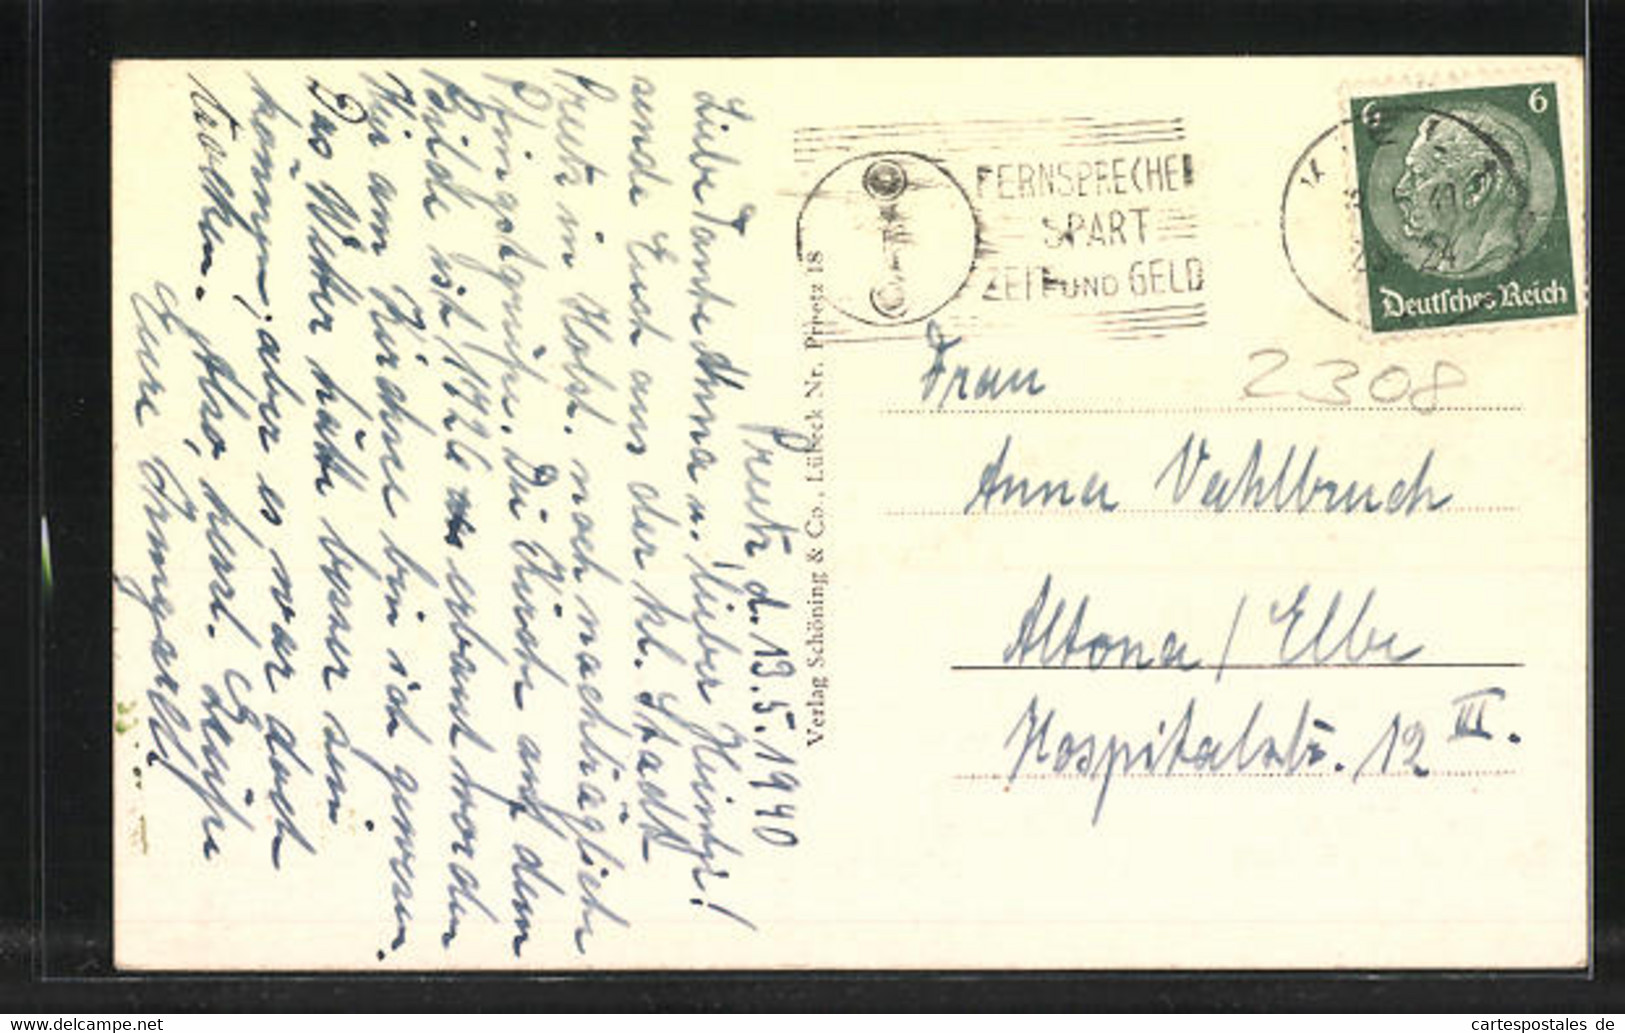 Preetz, d. 13.5.1940
Liebe Tante Anna u. lieber Heintze!
sende Euch aus der kl. Stadt
Preetz in Holst. noch nachträglich
Pfingstgrüße. Die Kirche auf dem
Bilde ist 1726 erbaut worden
Hir am Kirchsee bin ich gewesen.
Das Wetter hätte besser sein
können, aber es war doch
trocken. Also, herzl. Grüße
Eure Irmgard
Verlag Schöning & Co., Lübeck Nr. Preetz 18
FERNSPRECHEN
SPART
ZEIT UND GELD
6 6
Deutsches Reich
2308
Frau
Anna Vahlbruch
Altona / Elbe
Hospitalstr. 12 III.
cartespostales de